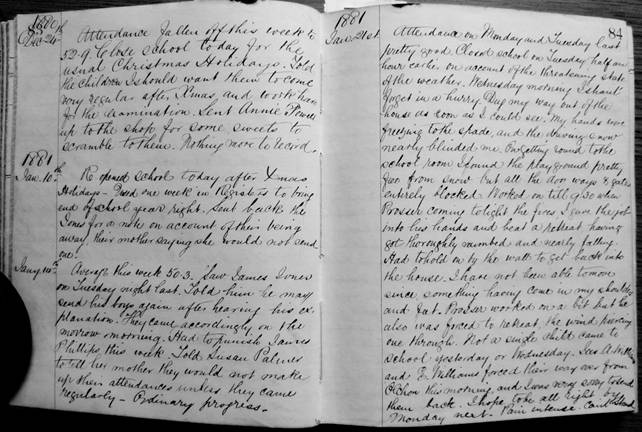 1880
Dec. 24th
Attendance fallen off this week to
52.9. Close school today for the
usual Christmas Holidays. Told
the children I should want them to come
very regular after Xmas, and work hard
for the Examination. Sent Annie Powell
up to the shop for some sweets to
scramble to them. Nothing more to record.
1881
Jan. 10th
Re opened school today after Xmas
Holidays – Used one week in Registers to bring
end of school year right. Sent back the
Jones for a note on account of their being
away, their mother saying she would not send
one.
Jany 14th
Average this week 50.3. Saw James Jones
on Tuesday night last. Told him he may
send his boys again after hearing his ex
planation. They came accordingly on the
morrow morning. Had to punish James
Phillips this week. Told Susan Palmer
to tell her mother they would not make
up their attendances unless they came
regularly – Ordinary progress.
84
1881
Jan. 21st.
Attendance on Monday and Tuesday last
pretty good. Closed school on Tuesday half an
hour earlier on account of the threatening state
of the weather. Wednesday morning I shant
forget in a hurry. Dug my way out of the
house as soon as I could see. My hands were
freezing to the spade, and the driving snow
nearly blinded me. On getting round to the
school room I found the playground pretty
free from snow but all the door ways & gates
entirely blocked. Worked on till 9.30 when
Prosser coming to light the fires, I gave the job
into his hands and beat a retreat having
got thoroughly numbed and nearly falling.
Had to hold on by the wall to get back into
the house. I have not been able to move
since something having come in my shoulder
and foot. Prosser worked on a bit but he
also was forced to retreat, the wind piercing
one through. Not a single child came to
school yesterday or Wednesday. Geo. A.
and E. Williams forced their way over from
this morning, and I was very sorry to send
them back. I hope to be all right by
Monday next. Pain intense. Cant stand